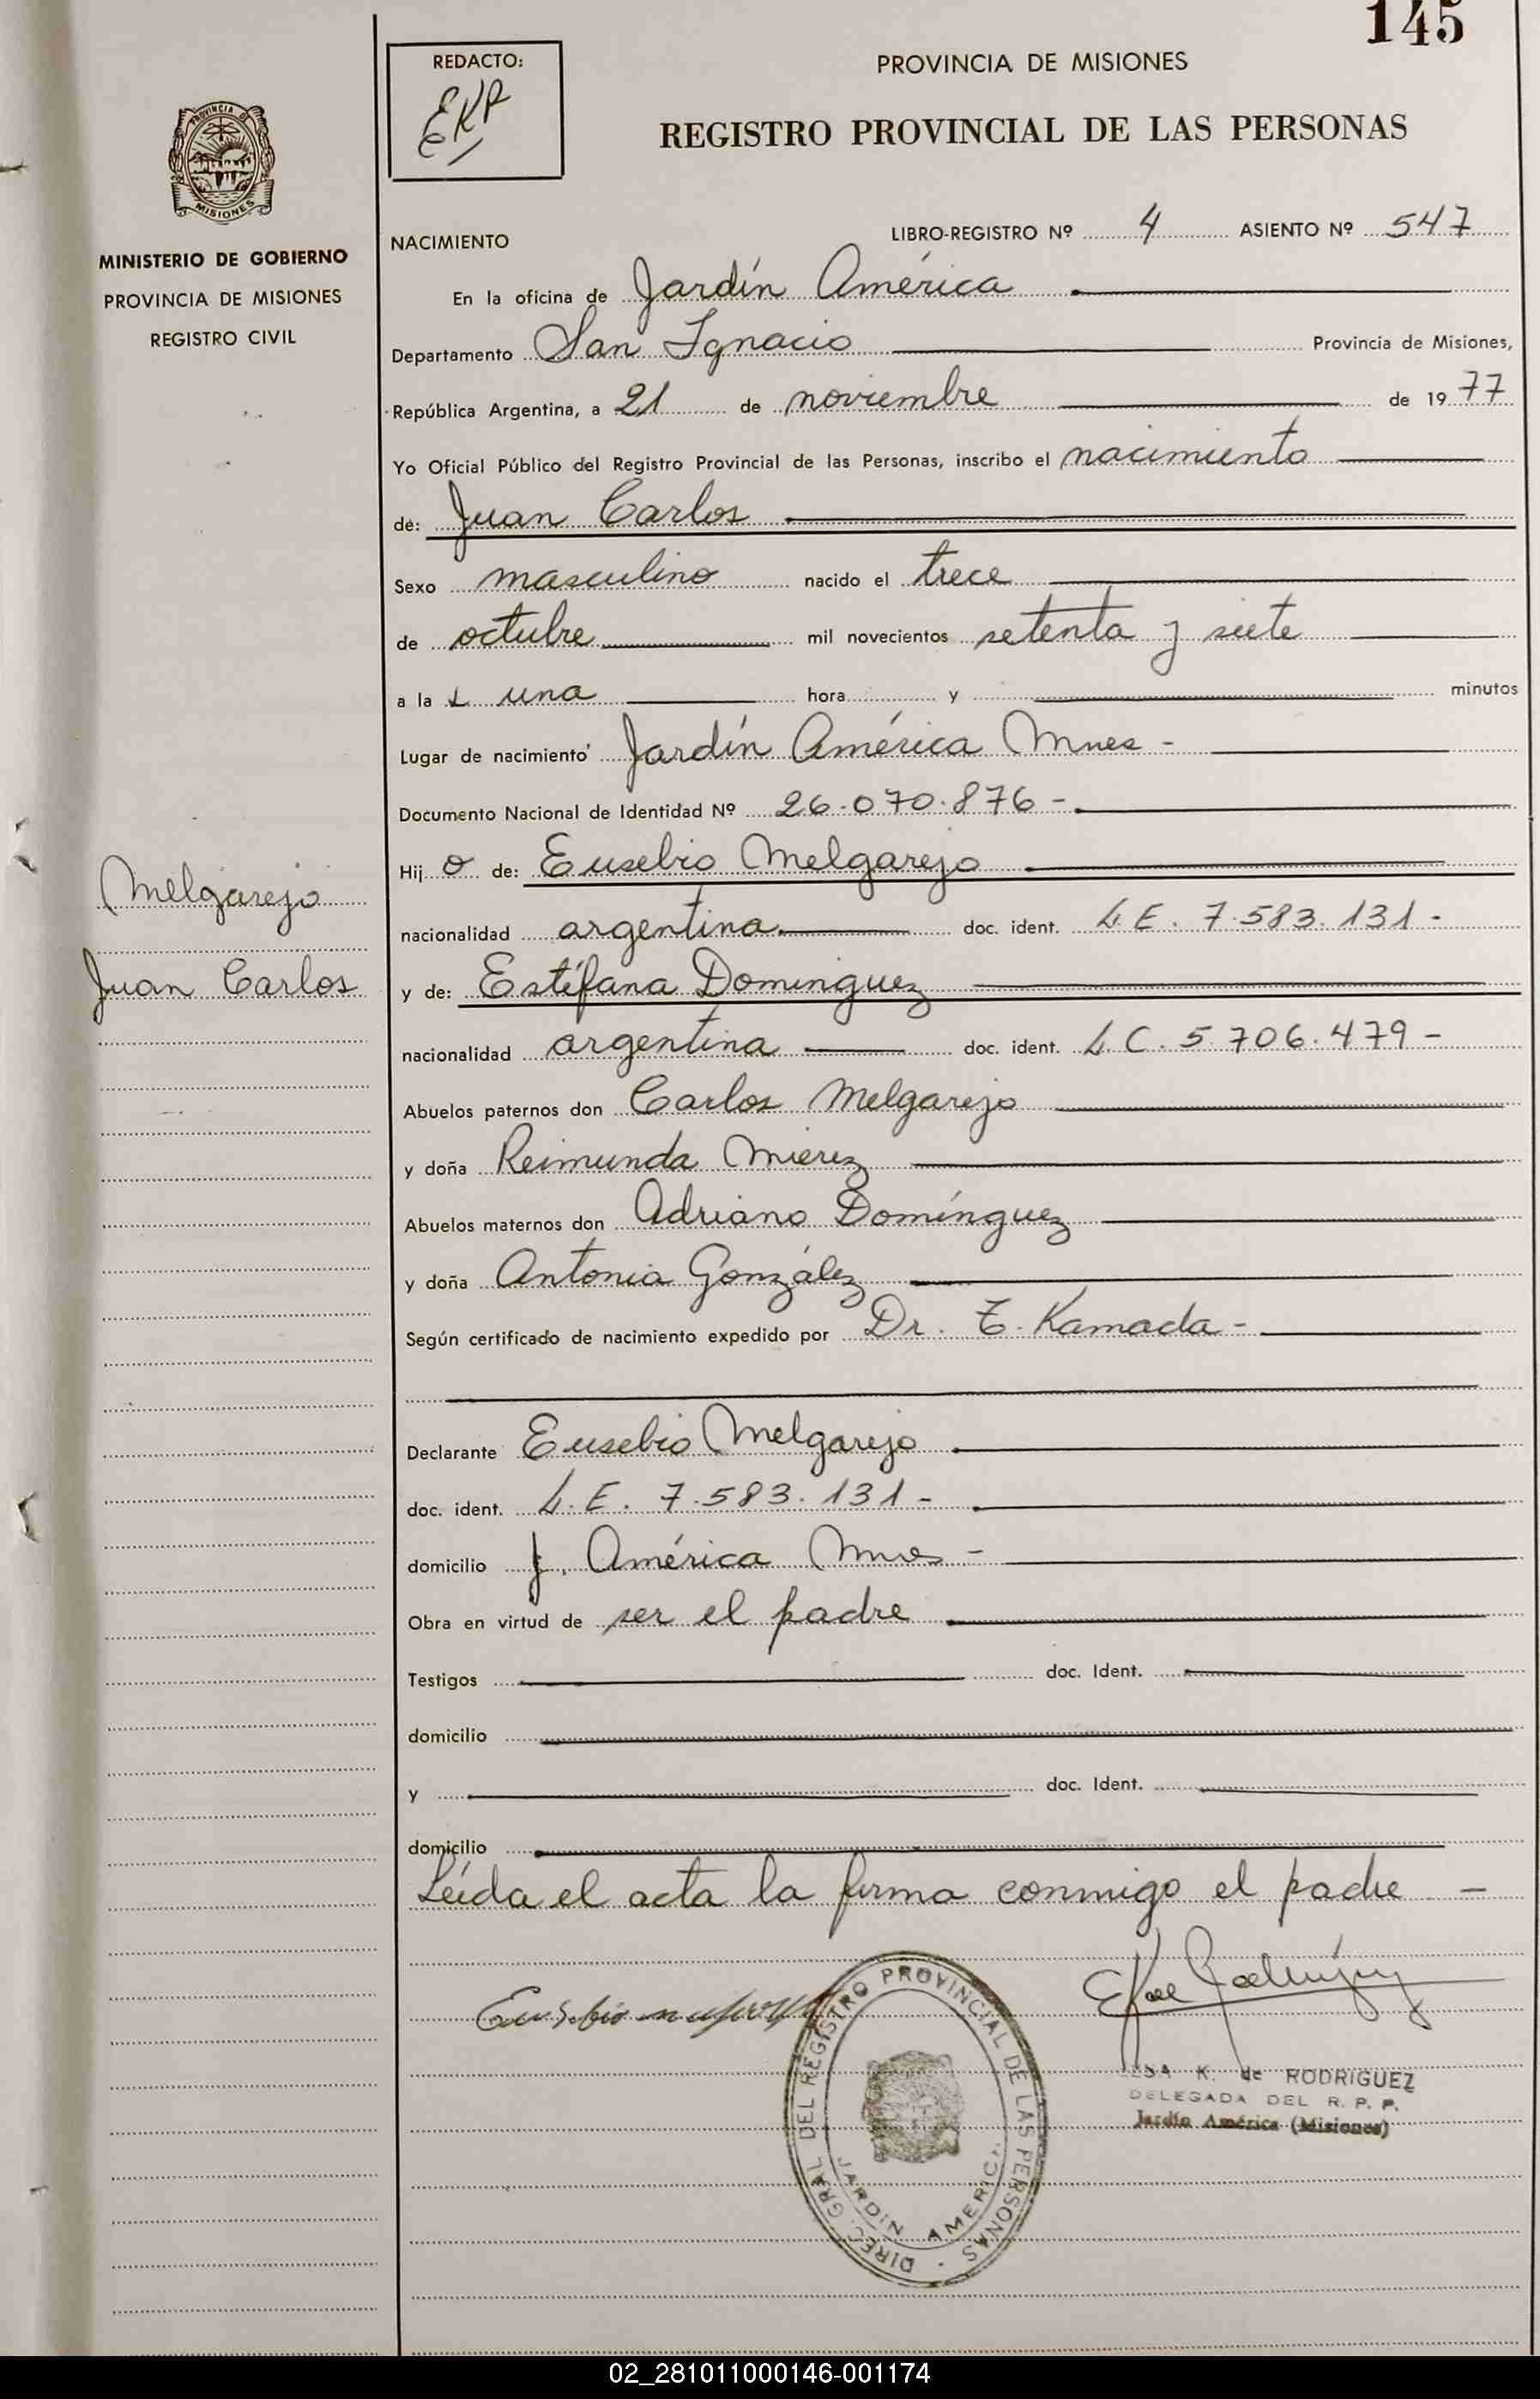 145
REDACTO:
EKR
PROVINCIA DE MISIONES
REGISTRO PROVINCIAL DE LAS PERSONAS
PROVINCIA DE
MISIONES
MINISTERIO DE GOBIERNO
PROVINCIA DE MISIONES
REGISTRO CIVIL
NACIMIENTO
LIBRO-REGISTRO Nº 4 ASIENTO Nº 547
En la oficina de Jardín América
Departamento San Ignacio Provincia de Misiones,
República Argentina, a 21 de noviembre de 1977
Yo Oficial Público del Registro Provincial de las Personas, inscribo el nacimiento
de: Juan Carlos
Sexo masculino nacido el trece
de octubre mil novecientos setenta y siete
a la una hora y minutos
Lugar de nacimiento Jardín América Mnes -
Documento Nacional de Identidad Nº 26.070.876 -
Hijo de: Eusebio Melgarejo
nacionalidad argentina. doc. ident. L.E. 7.583.131 -
y de: Estífana Dominguez
nacionalidad argentina doc. ident. L.C. 5.706.479 -
Abuelos paternos don Carlos Melgarejo
y doña Reimunda Mierez
Abuelos maternos don Adriano Domínguez
y doña Antonia González
Según certificado de nacimiento expedido por Dr. T. Kamada -
Declarante Eusebio Melgarejo
doc. ident. L.E. 7.583.131 -
domicilio J. América Mnes -
Obra en virtud de ser el padre
Testigos doc. Ident.
domicilio
y doc. Ident.
domicilio
Leída el acta la firma conmigo el padre -
Melgarejo
Juan Carlos
Eusebio
DIREC. GRAL. DEL REGISTRO PROVINCIAL DE LAS PERSONAS
JARDIN AMERICA
K. de RODRIGUEZ
DELEGADA DEL R. P. P.
Jardín América (Misiones)
02_281011000146-001174